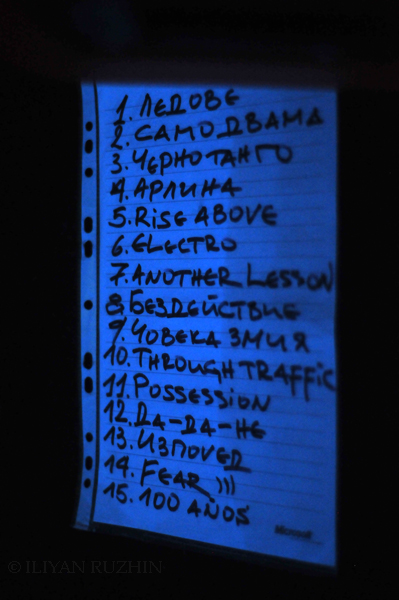 1. ЛЕДОВЕ
2. САМО ДВАМА
3. ЧЕРНО ТАНГО
4. АРЛИНА
5. RiSE ABOVE
6. ELECTRO
7. ANOTHER LESSON
8. БЕЗДЕЙСТВИЕ
9. ЧОВЕКА ЗМИЯ
10. THROUGH TRAFFiC
11. POSSESSiON
12. DA-DA-НЕ
13. ИЗПОВЕД
14. FEAR )))
15. 100 AÑOS
Microsoft
© ILIYAN RUZHIN